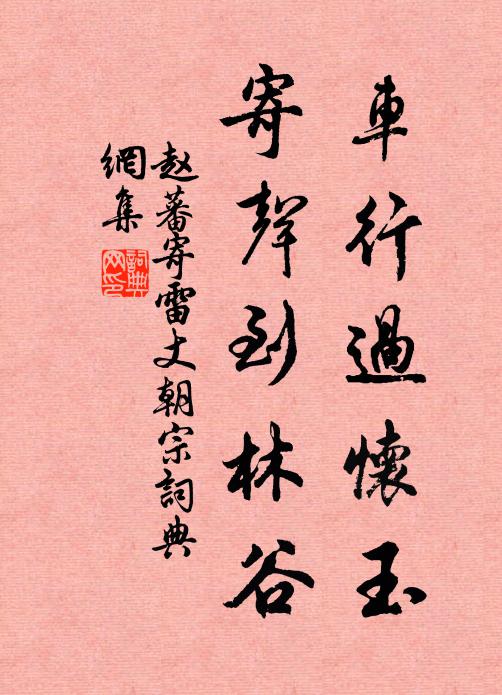 車行過懷玉
寄聲到林谷
赵蕃寄雷丈朝宗詞典
網集
詞典网印